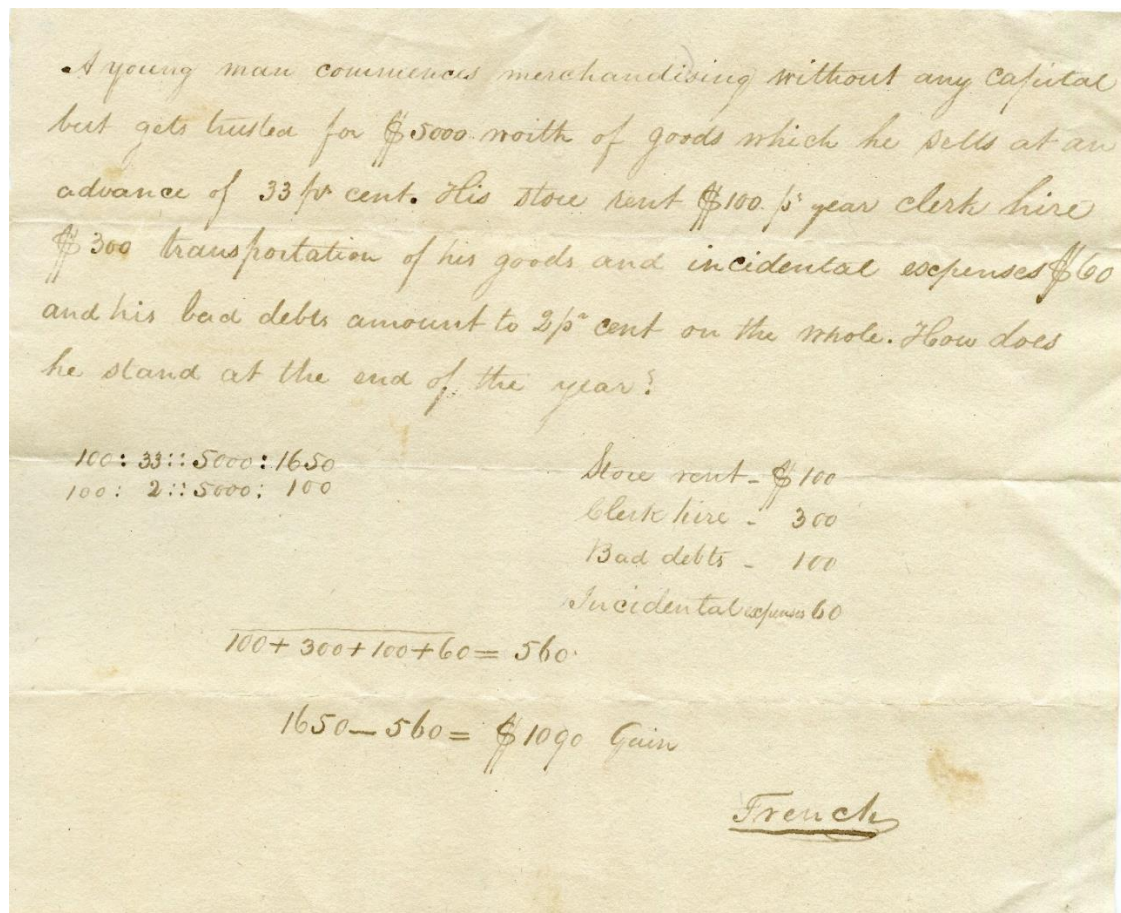 A young man commences merchandising without any capital
but gets trusted for $5000 worth of goods which he sells at an
advance of 33 pr cent. His store rent $100 pr year clerk hire
$300 transportation of his goods and incidental expenses $60
and his bad debts amount to 2 pr cent on the whole. How does
he stand at the end of the year?
100 : 33 :: 5000 : 1650
100 : 2 :: 5000 : 100
Store rent - $100
Clerk hire - 300
Bad debts - 100
Incidental expenses 60
100 + 300 + 100 + 60 = 560
1650 — 560 = $1090 Gain
French